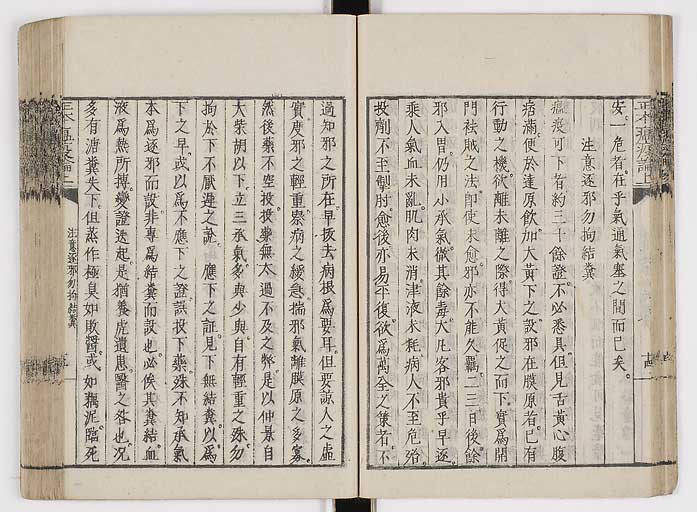 安一危者在乎氣通氣塞之間而已矣。
注意逐邪勿拘結糞
瘟疫可下者約三十餘證不必悉具但見舌黃心腹
痞滿便於達原飲加大黃下之設邪在膜原者已有
行動之機欲離未離之際得大黃促之而下實爲開
門祛賊之法即使未愈邪亦不能久羈二三日後餘
邪入胃仍用小承氣徹其餘毒大凡客邪貴乎早逐
乘人氣血未亂肌肉未消津液未耗病人不至危殆。
投劑不至掣肘愈後亦易平復欲爲萬全之策者不
過知邪之所在早拔去病根爲要耳但要諒人之虛
實度邪之輕重察病之緩急揣邪氣離膜原之多寡。
然後藥不空投投藥無太過不及之弊是以仲景自
大柴胡以下立三承氣多與少與自有輕重之殊勿
拘於下不厭遲之說應下之証見下無結糞以爲
下之早或以爲不應下之證誤投下藥殊不知承氣
本爲逐邪而設非專爲結糞而設也必俟其糞結血
液爲熱所搏變證迭起是猶養虎遺患醫之咎也況
多有溏糞失下但蒸作極臭如敗醬或如藕泥臨死
注意逐邪勿拘結糞